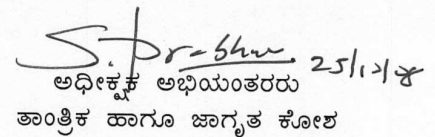 S. Prabhu 25/12/08
ಅಧೀಕ್ಷಕ ಅಭಿಯಂತರರು
ತಾಂತ್ರಿಕ ಹಾಗೂ ಜಾಗೃತ ಕೋಶ